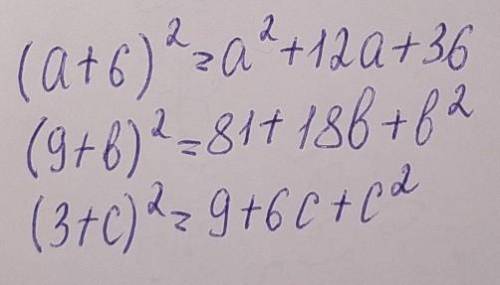 (a+6)²=a²+12a+36
(9+b)²=81+18b+b²
(3+c)²=9+6c+c²